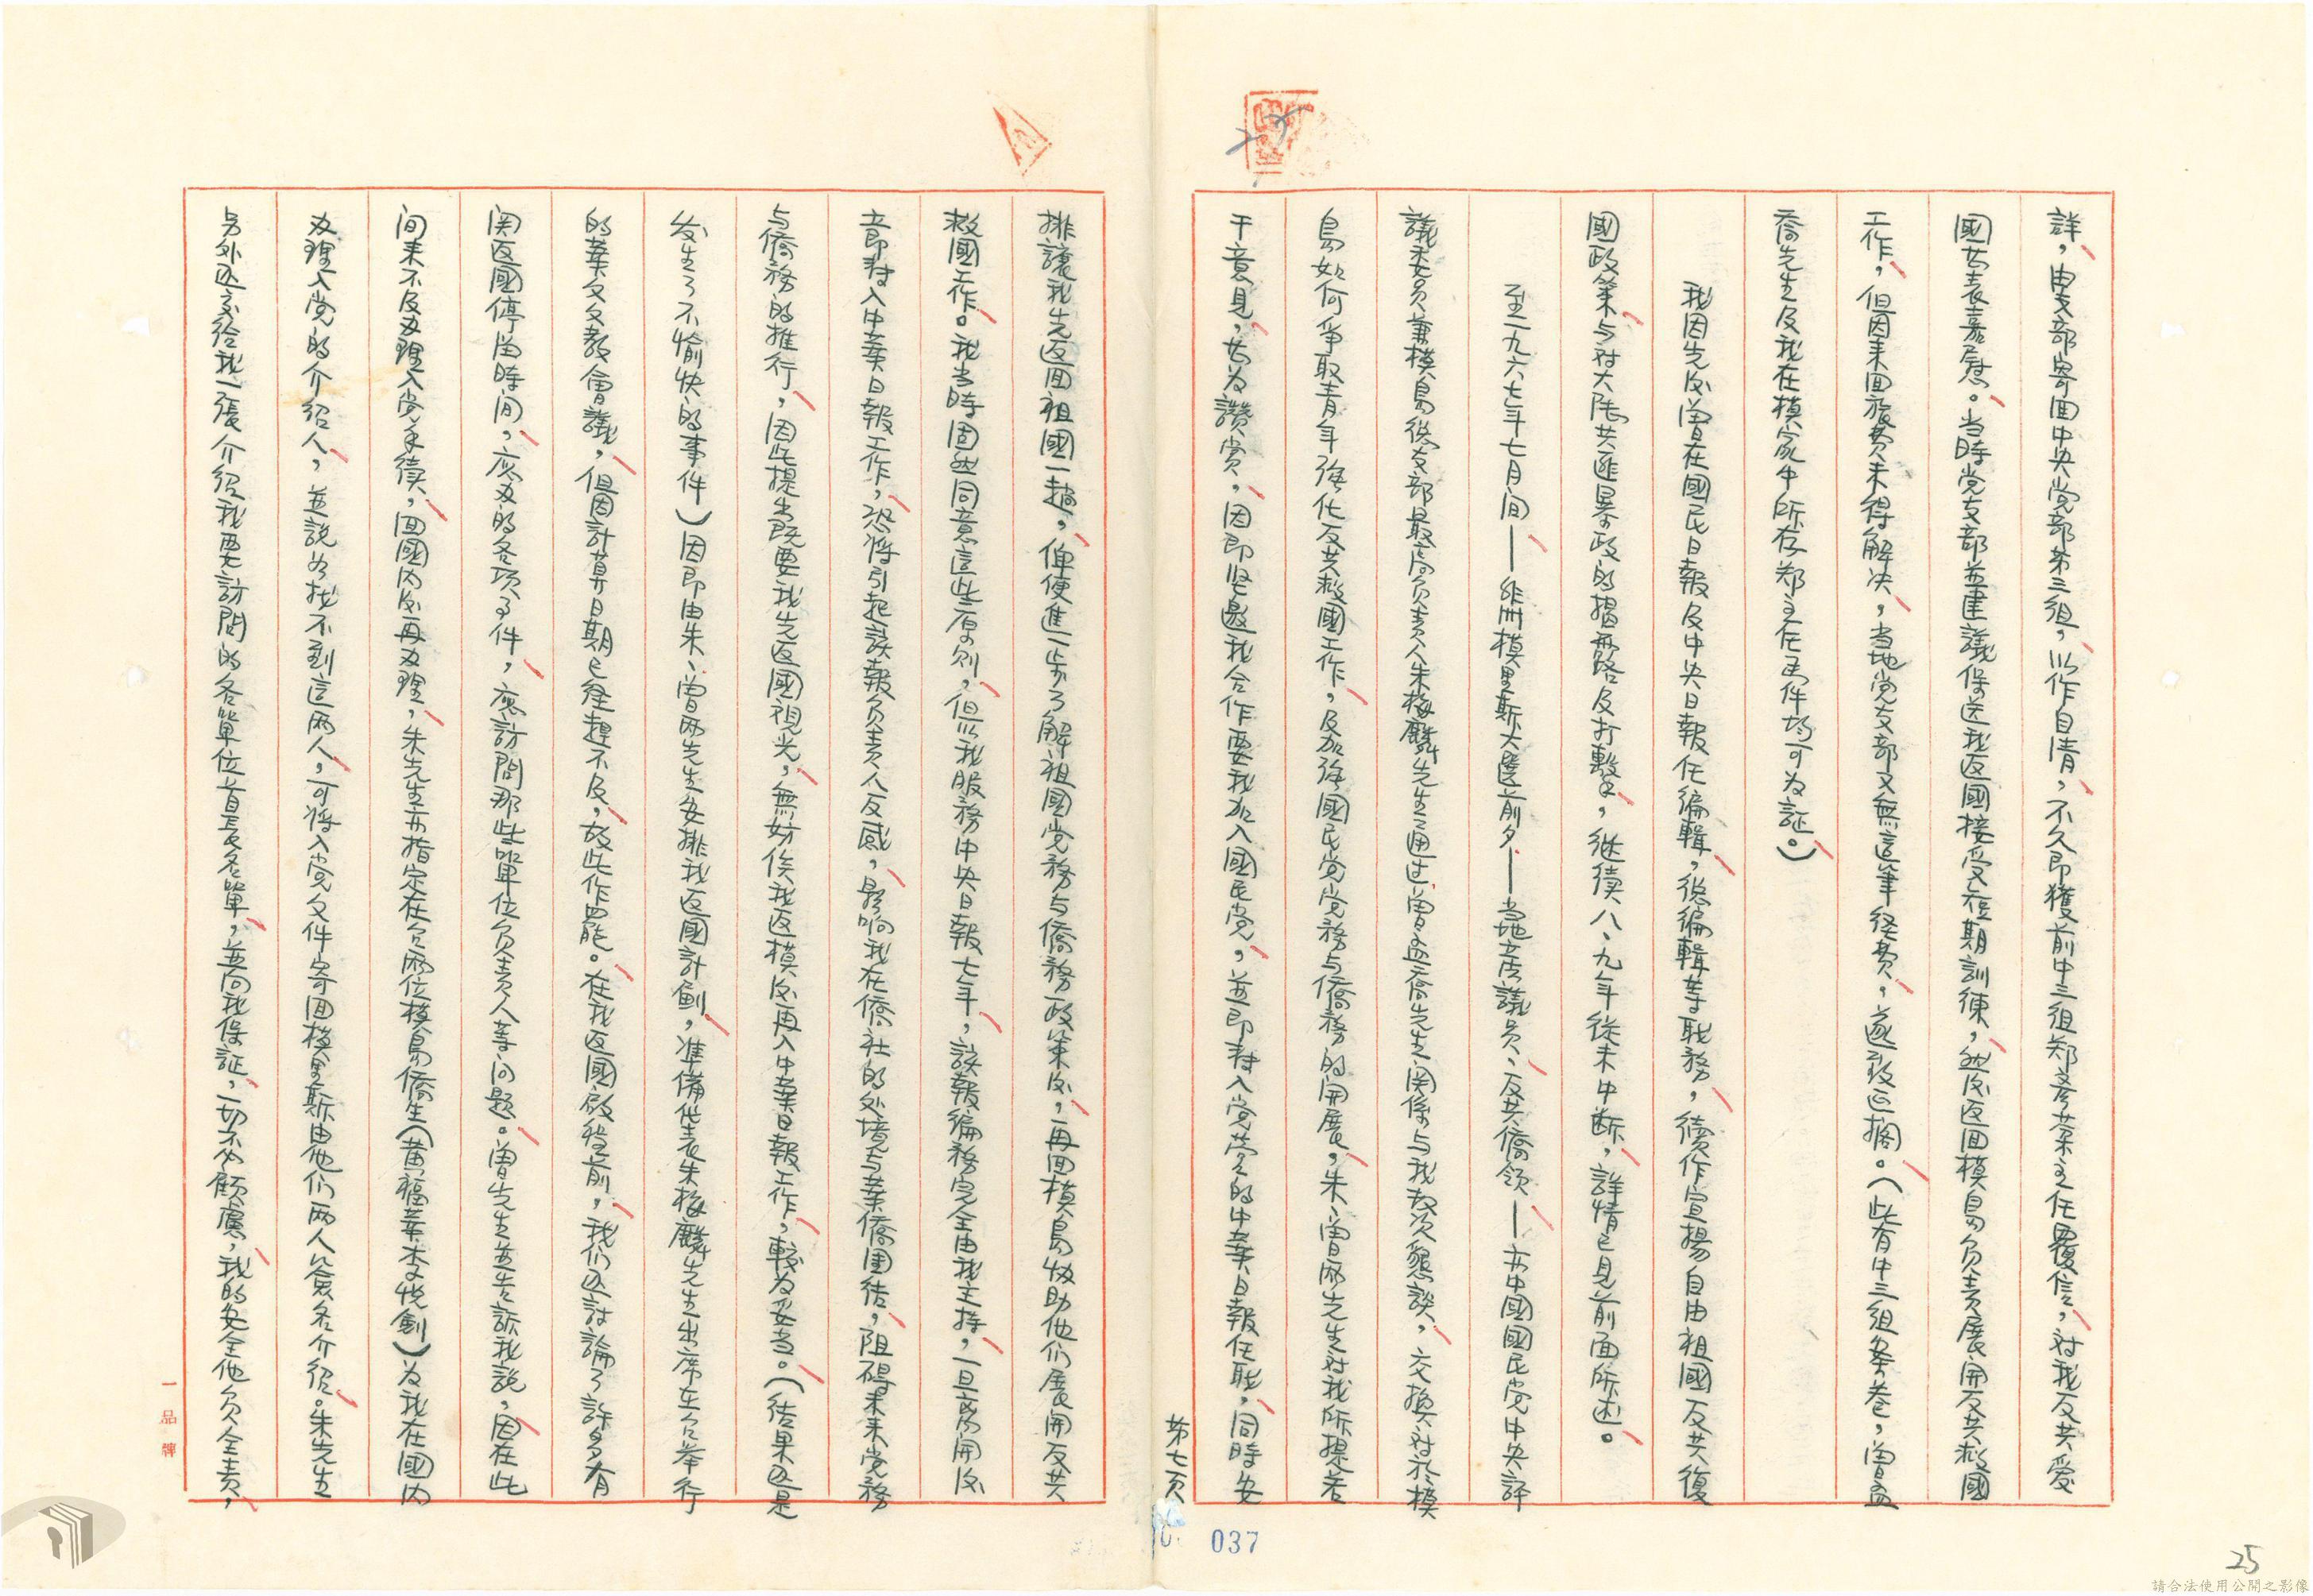 詳，由支部寄回中央党部第三組，以作自清，不久即獲前中三組郑彦棻主任覆信，对我反共愛
國芸表嘉慰。当時党支部並建議保送我返國接受短期訓練，然后返回模島負責展開反共救國
工作，但因来回旅費未得解决，当地党支部又無這筆経費，遂致延擱。（此有中三組案卷，曾孟
喬先生及我在模家中所存郑主任函件均可为証。）
我因先后曾在國民日報及中央日報任編輯，総編輯等職務，續作宣揚自由祖國反共復
國政策与对大陸共匪暴政的揭露及打擊，继續八、九年從未中断，詳情已見前面所述。
至一九六七年七月间——非洲模里斯大選前夕——当地産議員、反共僑領——亦中國國民党中央評
議委員兼模島総支部最高負責人朱梅麟先生通过曾孟喬先生関係与我数次懇談，交換对於模
島如何爭取青年強化反共救國工作，及加強國民党党務与僑務的開展，朱、曾兩先生对我所提若
干意見，甚为讚賞，因即堅邀我合作要我加入國民党，並即转入党営的中華日報任職，同時安
排讓我先返回祖國一趟，俾便進一步了解祖國党務与僑務政策后，再回模島協助他们展開反共
救國工作。我当時固然同意這些原則，但以我服務中央日報七年，該報編務完全由我主持，一旦离開后
立即转入中華日報工作，恐將引起該報負責人反感，影响我在僑社的处境与華僑團结，阻碍未来党務
与僑務的推行，因此提出既要我先返國观光，無妨俟我返模后再入中華日報工作，較为妥当。（结果还是
发生了不愉快的事件）因即由朱、曾兩先生安排我返國計劃，准備代表朱梅麟先生出席在台举行
的華文文教會議，但因計算日期已経趕不及，故此作罷。在我返國啟程前，我们还討論了許多有
関返國停留時间，應办的各項事件，應訪問那些單位負責人等问题。曾先生並告訴我説，因在此
间来不及办理入党手續，回國内后再办理，朱先生亦指定在台兩位模島僑生（黄福華李悦劍）为我在國内
办理入党的介紹人，並説如找不到這兩人，可將入党文件寄回模里斯由他们兩人簽名介紹。朱先生
另外还交给我一張介紹我要訪問的各單位首長名單，並向我保証，一切不必顧慮，我的安全他負全責，
第七頁
037
25
一品牌
請合法使用公開之影像